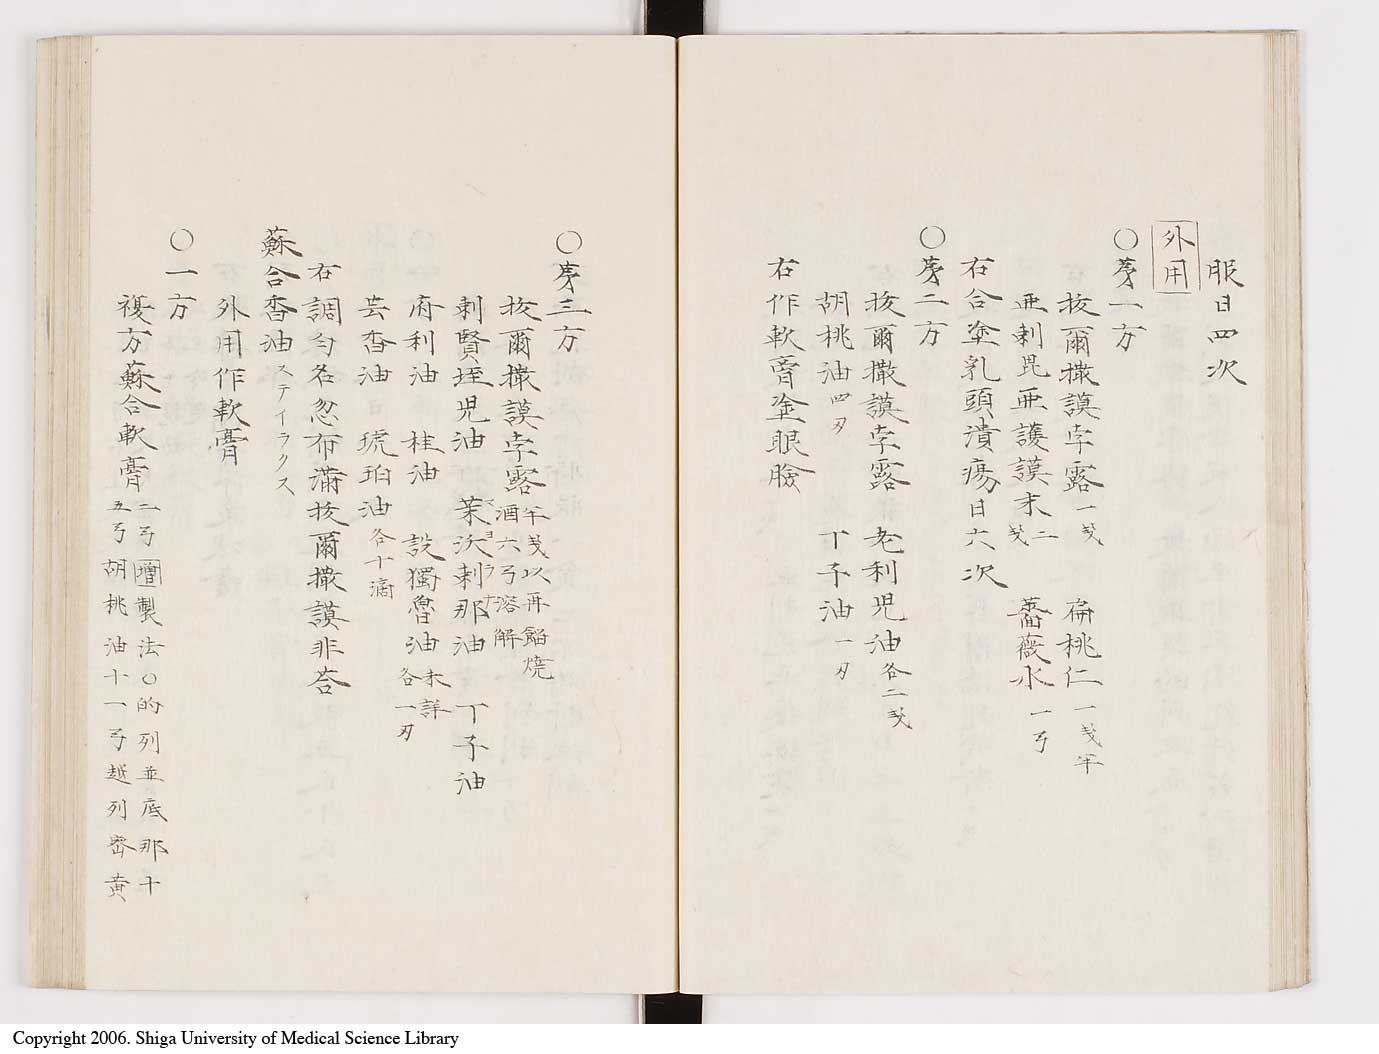 服日四次
外用
〇㐧一方
抜爾撒謨孛露一戔 扁桃仁一戔半
亜剌毘亜護謨末二戔 薔薇水一弓
右合塗乳頭潰瘍日六次
〇㐧二方
抜爾撒謨孛露 老利児油各二戔
胡桃油四刃 丁子油一刃
右作軟膏塗眼瞼
〇㐧三方
抜爾撒謨孛露半戔以再餾焼酒六弓溶解
剌賢垤児油 茉沃剌那油 丁子油
マヨラナ
府利油 桂油 設獨魯油未詳各一刃
芸香油 琥珀油各十滴
右調匀名忽布満抜爾撒謨非荅
蘇合香油ステイラクス
外用作軟膏
〇一方
複方蘇合軟膏二弓 増製法〇的列並底那十
五弓胡桃油十一弓越列密黄
Copyright 2006. Shiga University of Medical Science Library